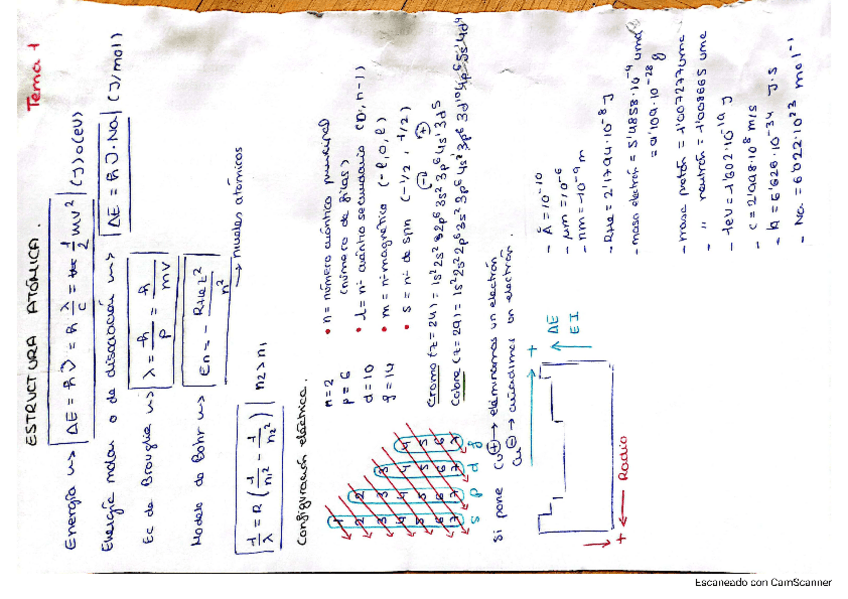 Tema 1
ESTRUCTURA ATÓMICA.
Energía ⇝ ΔE = h ν = h λ/c = 1/2 mv² (J) o (eV)
Energía molar o de disociación ⇝ ΔE = h ν · Na (J/mol)
Ec de Brouglie ⇝ λ = h/p = h/mv
Modelo de Bohr ⇝ En = - RHe z²/n² → niveles atómicos
1/λ = R (1/n1² - 1/n2²) n2 > n1
Configuración eléctrica.
1
2 2
3 3 3
4 4 4 4
5 5 5 5
6 6 6 6
7 7 7 7
s p d f
n=2
p=6
d=10
f=14
• n = número cuántico principal
(número de filas)
• l = nº cuántico secundario (0, n-1)
• m = nº magnético (-l, 0, l)
• s = nº de spin (-1/2, 1/2)
Cromo (z=24) = 1s² 2s² 2p⁶ 3s² 3p⁶ 4s¹ 3d⁵
Cobre (z=29) = 1s² 2s² 2p⁶ 3s² 3p⁶ 4s² 3p⁶ 3d¹⁰ 4p⁶ 5s 4d⁴
Si pone Cu⊕ → eliminamos un electrón
Cu⊖ → añadimos un electrón.
+
ΔE
EI
+ ← Radio
- Å = 10⁻¹⁰
- μm = 10⁻⁶
- nm = 10⁻⁹ m
- RHe = 2'1794·10⁻⁸ J
- masa electrón = 5'4858·10⁻⁴ uma
= 9'109·10⁻²⁸ g
- masa protón = 1'007277 uma
- " neutrón = 1'008665 uma
- 1eV = 1'602·10⁻¹⁹ J
- c = 2'998·10⁸ m/s
- h = 6'626·10⁻³⁴ J·s
- Na = 6'022·10²³ mol⁻¹
Escaneado con CamScanner